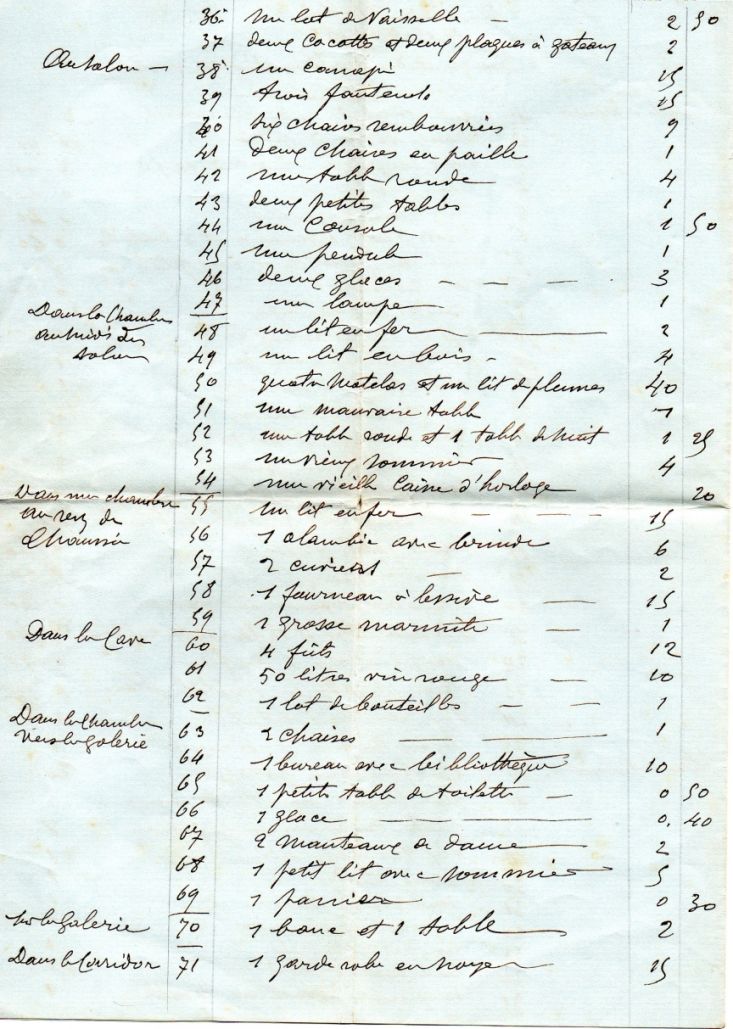 36 un lot de Vaisselle — 2 50
37 deux Cocottes et deux plaques à gateaux 2
Au salon — 38 un canapé 15
39 trois fauteuils 15
40 six chaises rembourrées 9
41 deux chaises en paille 1
42 une table ronde 4
43 deux petites tables 1
44 une Console 1 50
45 une pendule 1
46 deux glaces — — — 3
47 une lampe 1
Dans la Chambre
au midi du
salon
48 un lit en fer — 2
49 un lit en bois - 4
50 quatre Matelas et un lit de plumes 40
51 une mauvaise table 1
52 une table ronde et 1 table de Nuit 1 25
53 un vieux sommier 4
54 une vieille Caisse d'horloge 20
Dans une chambre
au rez de
Chaussée
55 un lit en fer — — — 15
56 1 alambic avec 6
57 2 — 2
58 1 fourneau à lessive — 15
59 1 grosse marmite — 1
Dans la Cave 60 4 fûts 12
61 50 litres vin rouge — 10
62 1 lot de bouteilles — - 1
Dans la Chambre
vers la galerie
63 2 chaises — — 1
64 1 bureau avec bibliothèque 10
65 1 petite table de toilette — 0 50
66 1 glace — — — 0. 40
67 2 manteaux de dame 2
68 1 petit lit avec sommier 5
69 1 panier 0 30
Sur la Galerie 70 1 banc et 1 table 2
Dans le Corridor 71 1 garde robe en noyer 15